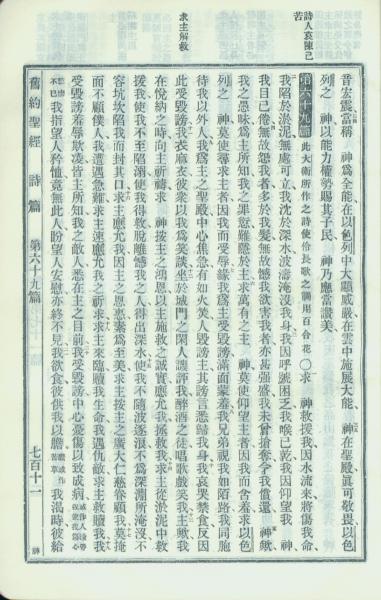 詩人哀陳己苦
音宏震當稱　神爲全能在以色列中大顯威嚴在雲中施展大能　神在聖殿眞可敬畏以色
列之　神以能力權勢賜其子民　神乃應當讚美
第六十九篇　此大衛所作之詩使伶長歌之調用百合花○求　神救援我因水流來將傷我命
我陷於淤泥無處可立我沈於深水波濤淹沒我身我因呼號困乏我喉已乾我因仰望我　神
我目已倦無故怨我者多於我髮無故憾我欲害我者亦甚强盛我未曾搶奪今我償還　神歟
我之愚昧爲主所知我之罪愆難隱於主求萬有之主　神莫使仰望主者因我而含羞求以色
列之　神莫使尋求主者因我而受辱緣我爲主受毀謗滿面蒙羞我兄弟視我如陌路我同胞
求主解救
待我以外人我爲主之聖殿中心焦急有如火焚人毀謗主其謗言悉歸我身我哀哭禁食反因
此受毀謗我衣麻衣彼衆以我爲笑談坐於城門之閑人譏評我醉酒之徒唱歌戲笑我主歟我
在悅納之時向主祈禱求　神按主之鴻恩以主施救之誠實應允我拯救我求主從淤泥中救
援我使我不至陷溺使我得救脫離憾我之人得出深水使我不隨波逐浪不爲深淵所淹沒不
容坑坎陷我而封其口求主應允我因主之恩惠素爲至美求主按主之廣大仁慈眷顧我莫掩
面不顧僕人我遭遇急難求主速應允我之祈求求主來臨贖我生命我遇仇敵求主救贖我我
受毀謗羞辱欺凌皆主所知我之敵人悉在主之目前我受毀謗中心憂傷以致成病
我指望人矜恤竟無此人盼望人安慰亦終不見我欲食彼供我以膽　我渴時彼給
舊約聖經　詩篇　第六十九篇　七百十一